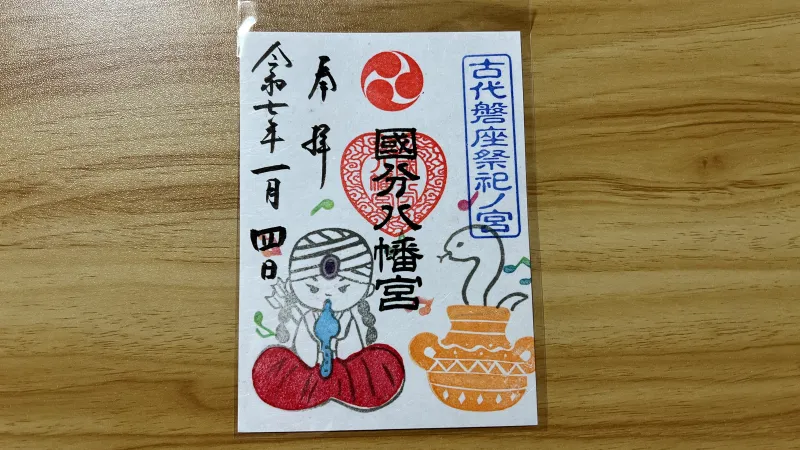 古代磐座祭祀ノ宮
國分八幡宮
奉拝
令和七年一月四日